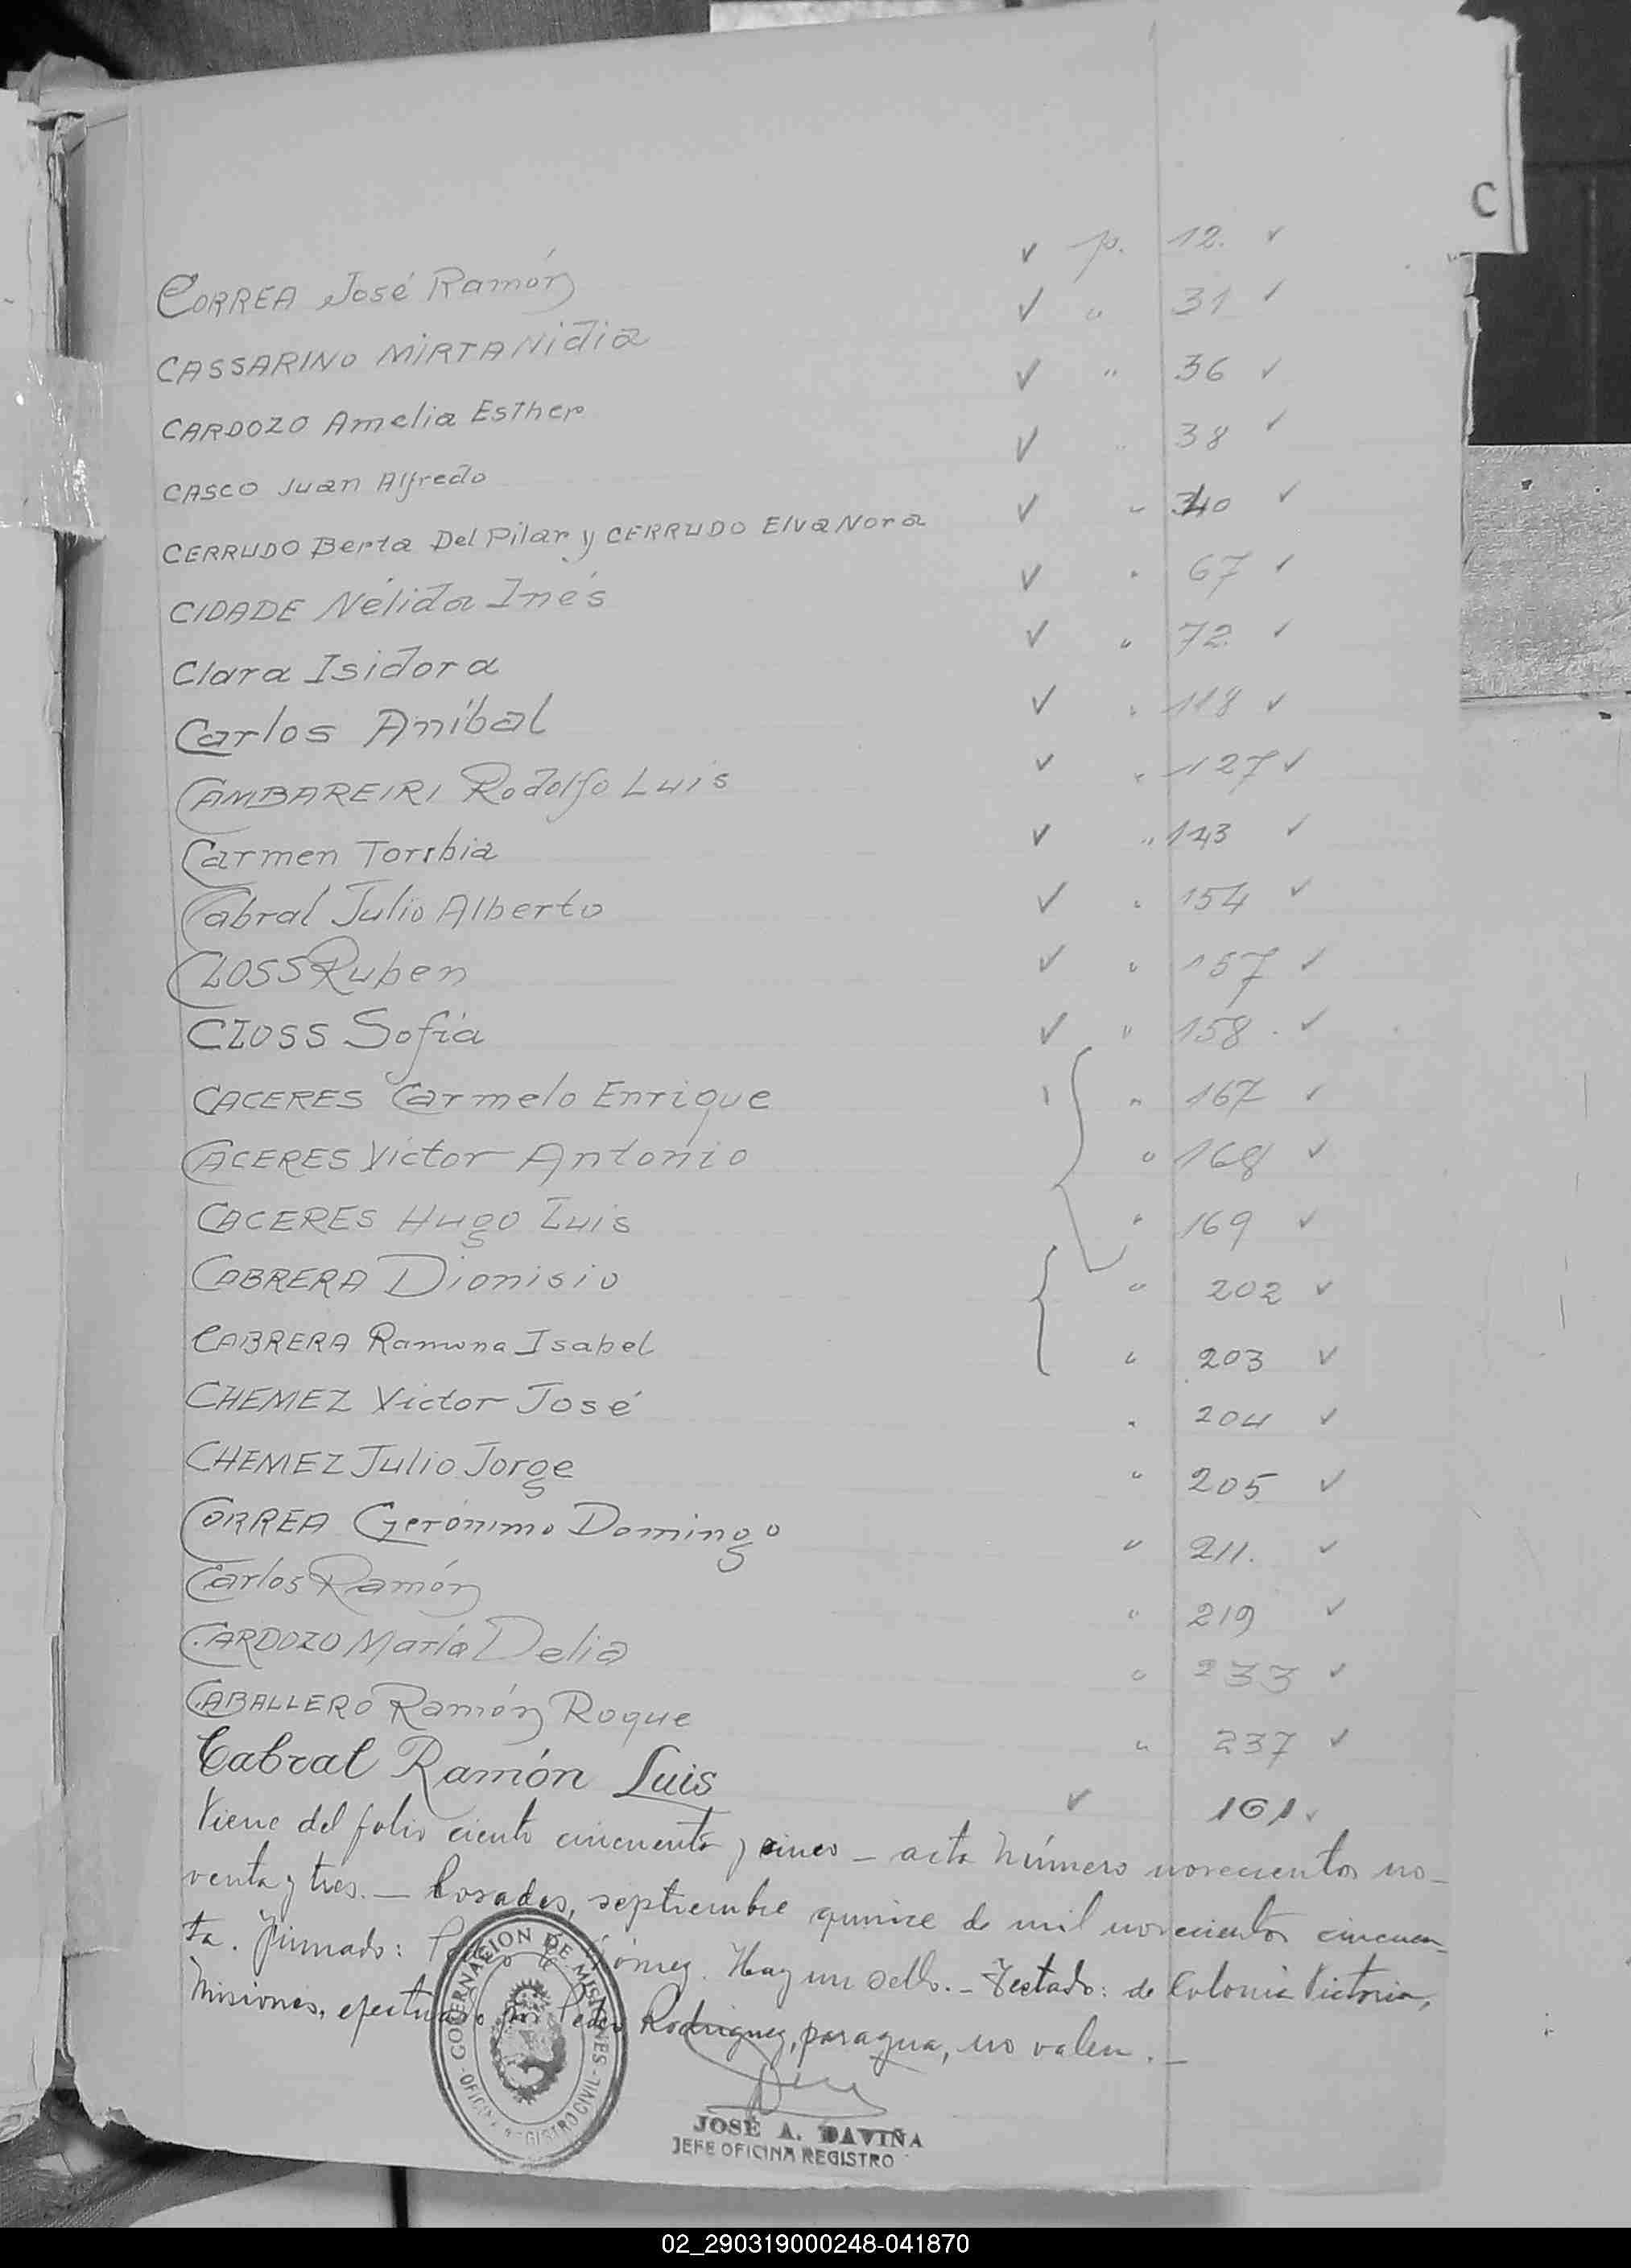 C
CORREA José Ramón ✓ p. 12. ✓
CASSARINO MIRTA Nidia ✓ " 31 ✓
CARDOZO Amelia Esther ✓ " 36 ✓
CASCO Juan Alfredo ✓ " 38 ✓
CERRUDO Berta Del Pilar y CERRUDO Elva Nora ✓ " 40 ✓
CIDADE Nélida Inés ✓ " 67 ✓
Clara Isidora ✓ " 72 ✓
Carlos Aníbal ✓ " 118 ✓
CAMBAREIRI Rodolfo Luis ✓ " 127 ✓
Carmen Toribia ✓ " 143 ✓
Cabral Julio Alberto ✓ " 154 ✓
CLOSS Ruben ✓ " 157 ✓
CLOSS Sofia ✓ " 158. ✓
CACERES Carmelo Enrique " 167 ✓
CACERES Victor Antonio " 168 ✓
CACERES Hugo Luis " 169 ✓
CABRERA Dionisio " 202 ✓
CABRERA Ramona Isabel " 203 ✓
CHEMEZ Victor José " 204 ✓
CHEMEZ Julio Jorge " 205 ✓
CORREA Gerónimo Domingo " 211. ✓
Carlos Ramón " 219 ✓
CARDOZO María Delia " 233 ✓
CABALLERO Ramón Roque " 237 ✓
Cabral Ramón Luis ✓ 161 ✓
Viene del folio ciento cincuenta y cinco – acta número novecientos no-
venta y tres. – Posadas, septiembre quince de mil novecientos cincuen-
ta. Firmado: Gómez. Hay un sello. – Testado: de Colonia Victoria,
Misiones, efectuado por Pedro Rodriguez, paragua, no valen. –
GOBERNACION DE MISIONES
OFICINA REGISTRO CIVIL
JOSÉ A. DAVIÑA
JEFE OFICINA REGISTRO
02_290319000248-041870